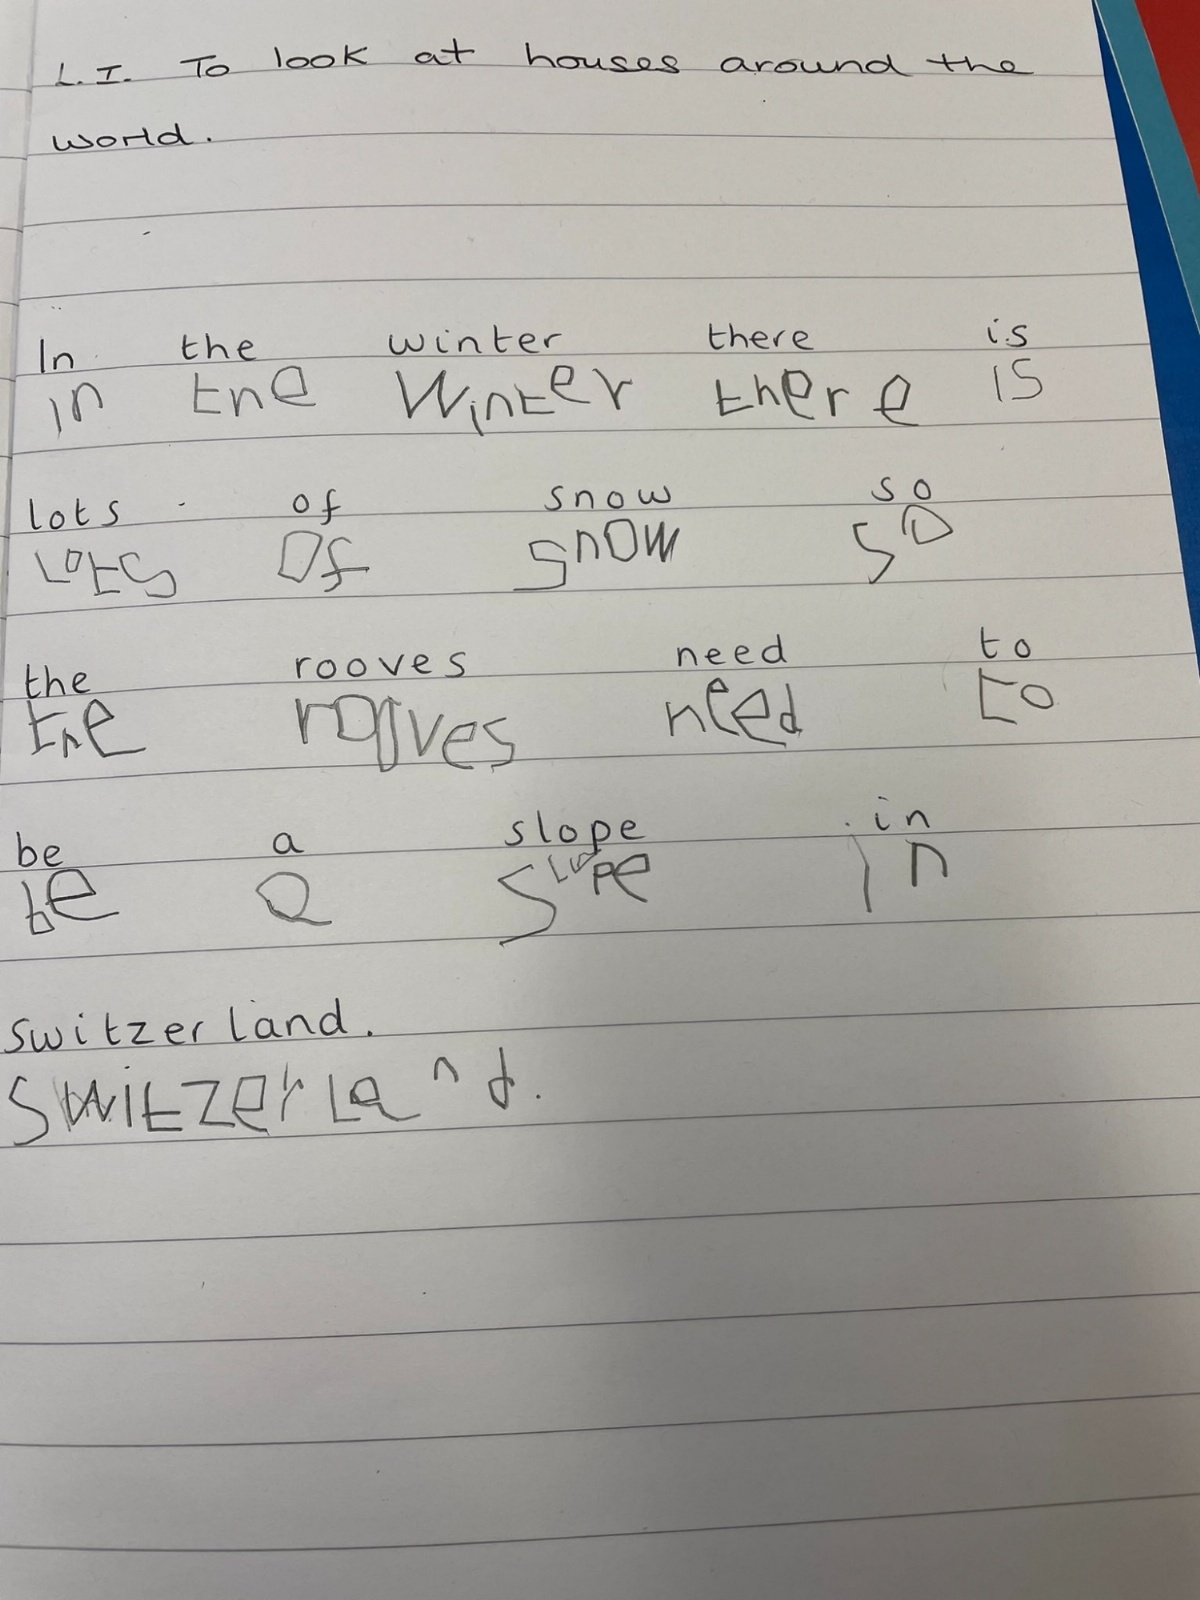 L.I. To look at houses around the
world.
In the winter there is
in the Winter there is
lots of snow so
Lots Of snow so
the rooves need to
the rooves need to
be a slope in
be a slope in
switzerland.
Switzerland.